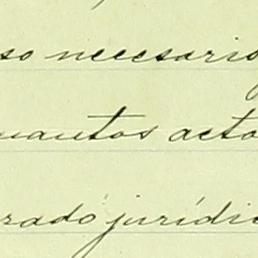 so necesario
uantos acto
rado jurídic